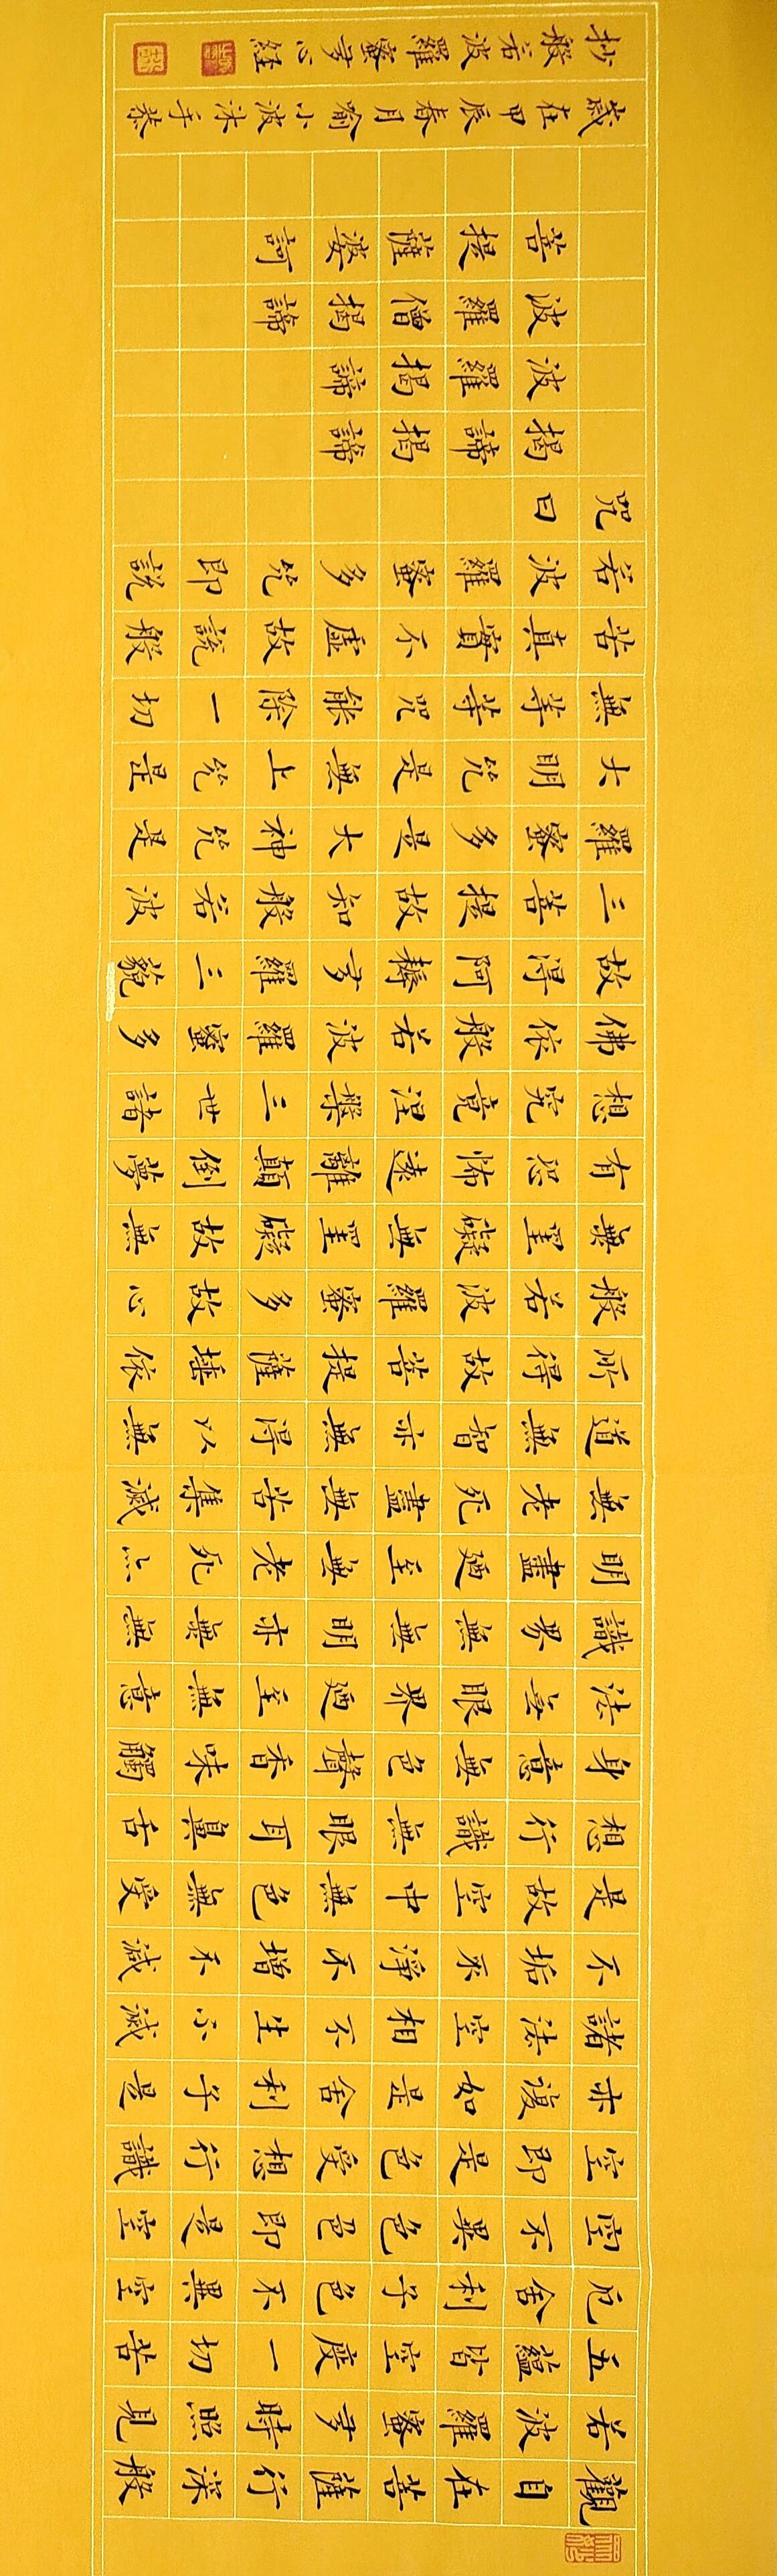 觀自在菩薩行深般
若波羅蜜多時照見
五蘊皆空度一切苦
厄舍利子色不異空
空不異色色即是空
空即是色受想行識
亦復如是舍利子是
諸法空相不生不滅
不垢不淨不增不減
是故空中無色無受
想行識無眼耳鼻舌
身意無色聲香味觸
法無眼界廼至無意
識界無無明亦無無
明盡廼至無老死亦
無老死盡無苦集滅
道無智亦無得以無
所得故菩提薩埵依
般若波羅蜜多故心
無罣礙無罣礙故無
有恐怖遠離顛倒夢
想究竟涅槃三世諸
佛依般若波羅蜜多
故得阿耨多羅三藐
三菩提故知般若波
羅蜜多是大神咒是
大明咒是無上咒是
無等等咒能除一切
苦真實不虛故說般
若波羅蜜多咒即說
咒曰
揭諦揭諦
波羅揭諦
波羅僧揭諦
菩提薩婆訶
歲在甲辰春月俞小波沐手恭
抄般若波羅蜜多心経